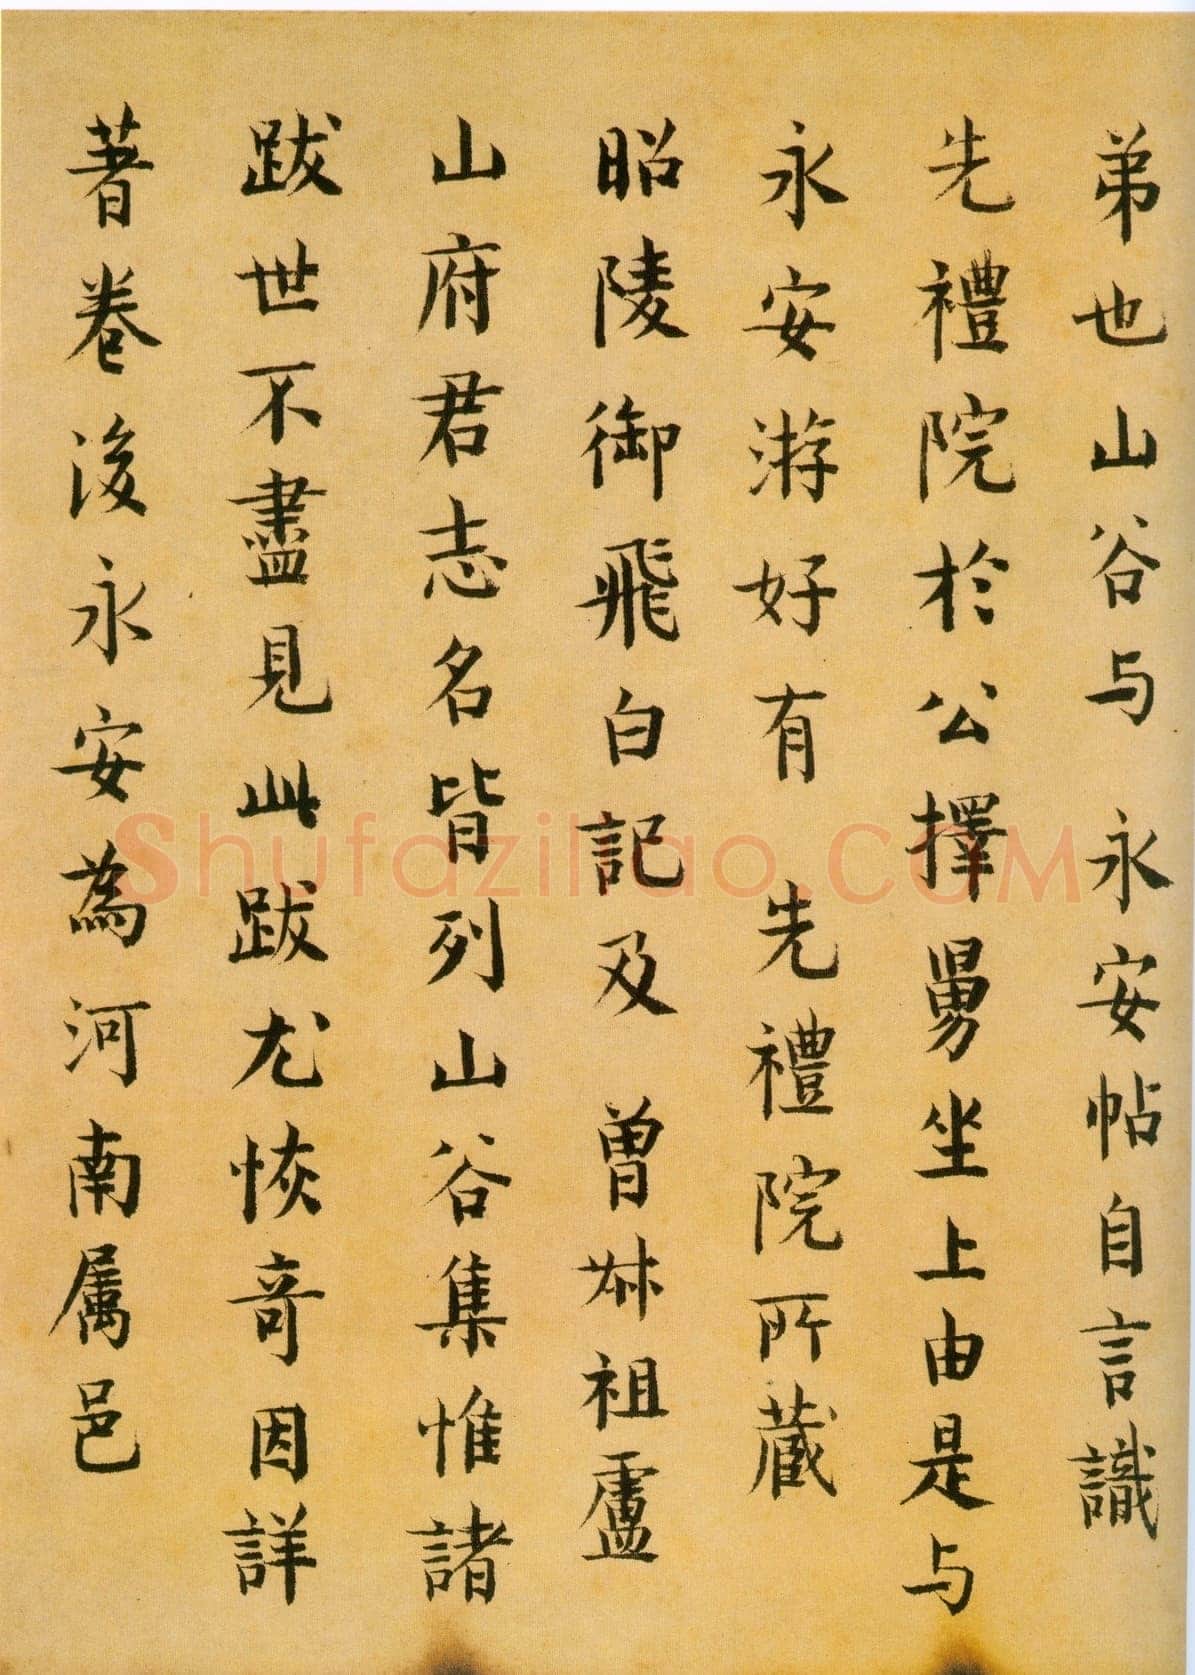 弟也山谷与 永安帖自言識
先禮院於公擇舅坐上由是与
永安游好有 先禮院所蔵
昭陵御飛白記及 曾叔祖盧
山府君志名皆列山谷集惟諸
跋世不盡見此跋尤恢奇因詳
著卷後永安為河南属邑
Shufaziliao.COM